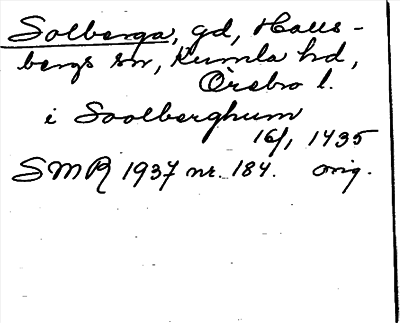 Solberga, gd, Halls-
bergs sn, Kumla hd,
Örebro l.
i Soolberghum
16/1 1435
SMR 1937 nr. 184. orig.